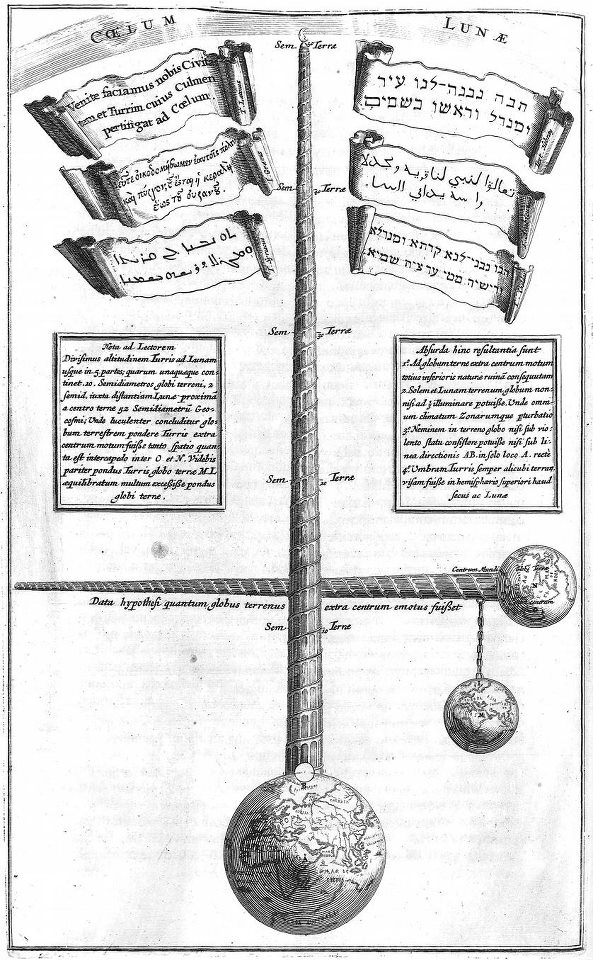 CŒLUM LUNÆ
Sem. Terræ
Venite faciamus nobis Civita
tem et Turrim cuius Culmen
pertingat ad Cœlum.
הבה נבנה-לנו עיר
ומגדל וראשו בשמים
Δεῦτε οἰκοδομήσωμεν ἑαυτοῖς πόλιν
καὶ πύργον, οὗ ἔσται ἡ κεφαλὴ
ἕως τοῦ οὐρανοῦ.
Sem. Terræ
הבו נבני-לנא קרתא ומגדלא
ורישיה מטי ערצית שמיא
Sem. Terræ
Nota ad Lectorem
Divisimus altitudinem Turris ad Lunam
usque in 5 partes; quarum unaquæque con
tinet 10. Semidiametros globi terreni, 2
semid. iuxta distantiam Lunæ proximã
a centro terræ 52 Semidiametrũ Geo-
cosmi; Unde luculenter concluditur glo-
bum terrestrem pondere Turris extra
centrum motum fuisse tanto spatio quan-
ta est intercapedo inter O et N. Videbis
pariter pondus Turris globo terræ M.L
æquilibratum multum excessisse pondus
globi terræ.
Absurda hinc resultantia sunt
1º. Ad globum terræ extra centrum motum
totius inferioris naturæ ruinã consequutam
2. Solem et Lunam terrenum globum non-
nisi ad ½ illuminare potuisse. Unde omni-
um climatum Zonarumque pturbatio
3º. Neminem in terreno globo nisi sub vio-
lento statu consistere potuisse nisi sub li-
nea directionis AB. in solo loco A. recte
4º. Umbram Turris semper alicubi terrarũ
visam fuisse in hemisphærio superiori haud
secus ac Lunæ
Sem. Terræ
Centrum Mundi
Data hypothesi quantum globus terrenus extra centrum emotus fuisset
Sem. 10 Terræ